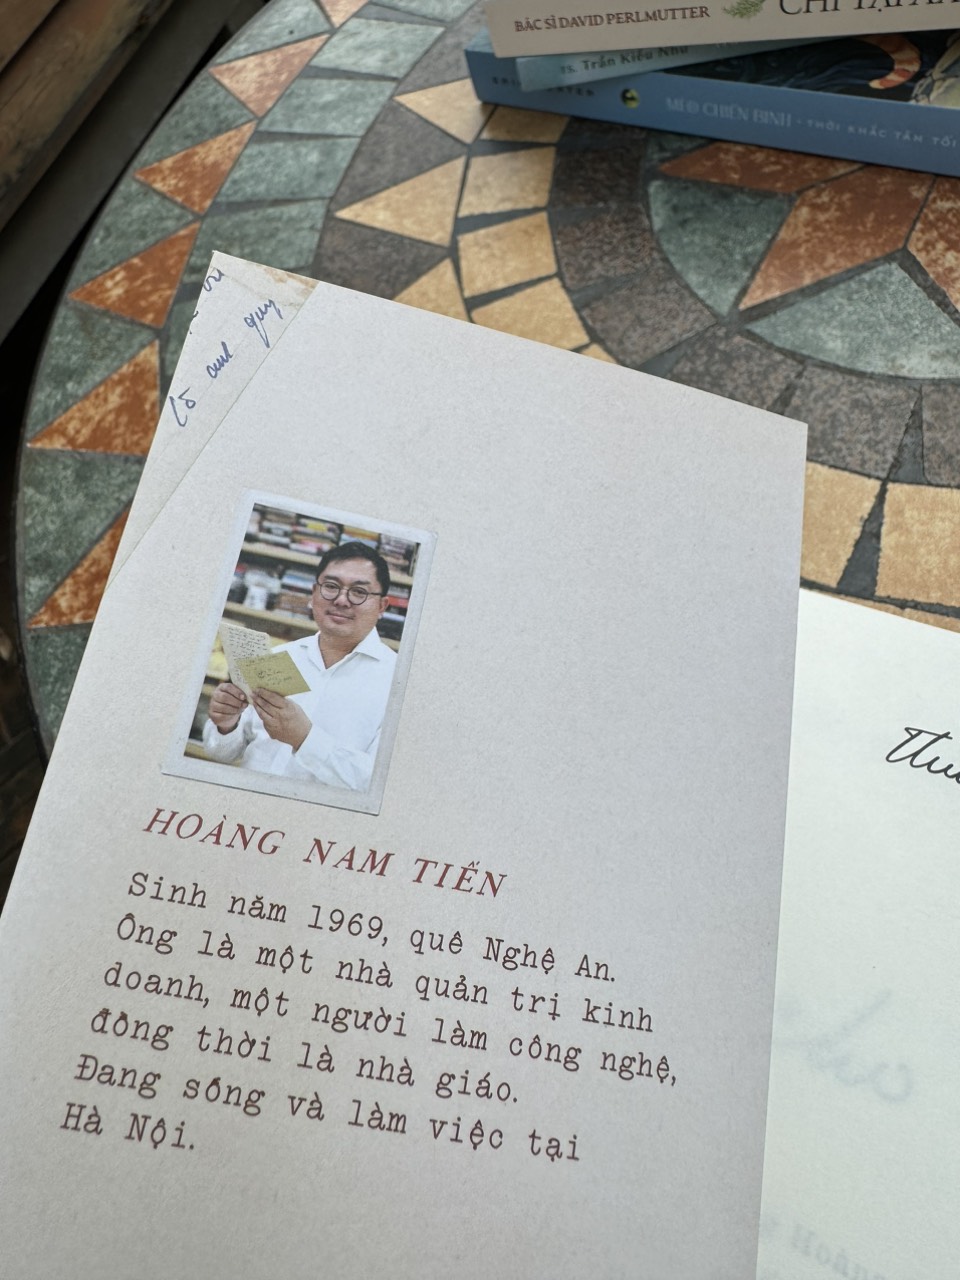 BÁC SĨ DAVID PERLMUTTER
TS. Trần Kiều Như
MÈO CHIẾN BINH • THỜI KHẮC TĂM TỐI
cô anh quy
HOÀNG NAM TIẾN
Sinh năm 1969, quê Nghệ An.
Ông là một nhà quản trị kinh
doanh, một người làm công nghệ,
đồng thời là nhà giáo.
Đang sống và làm việc tại
Hà Nội.